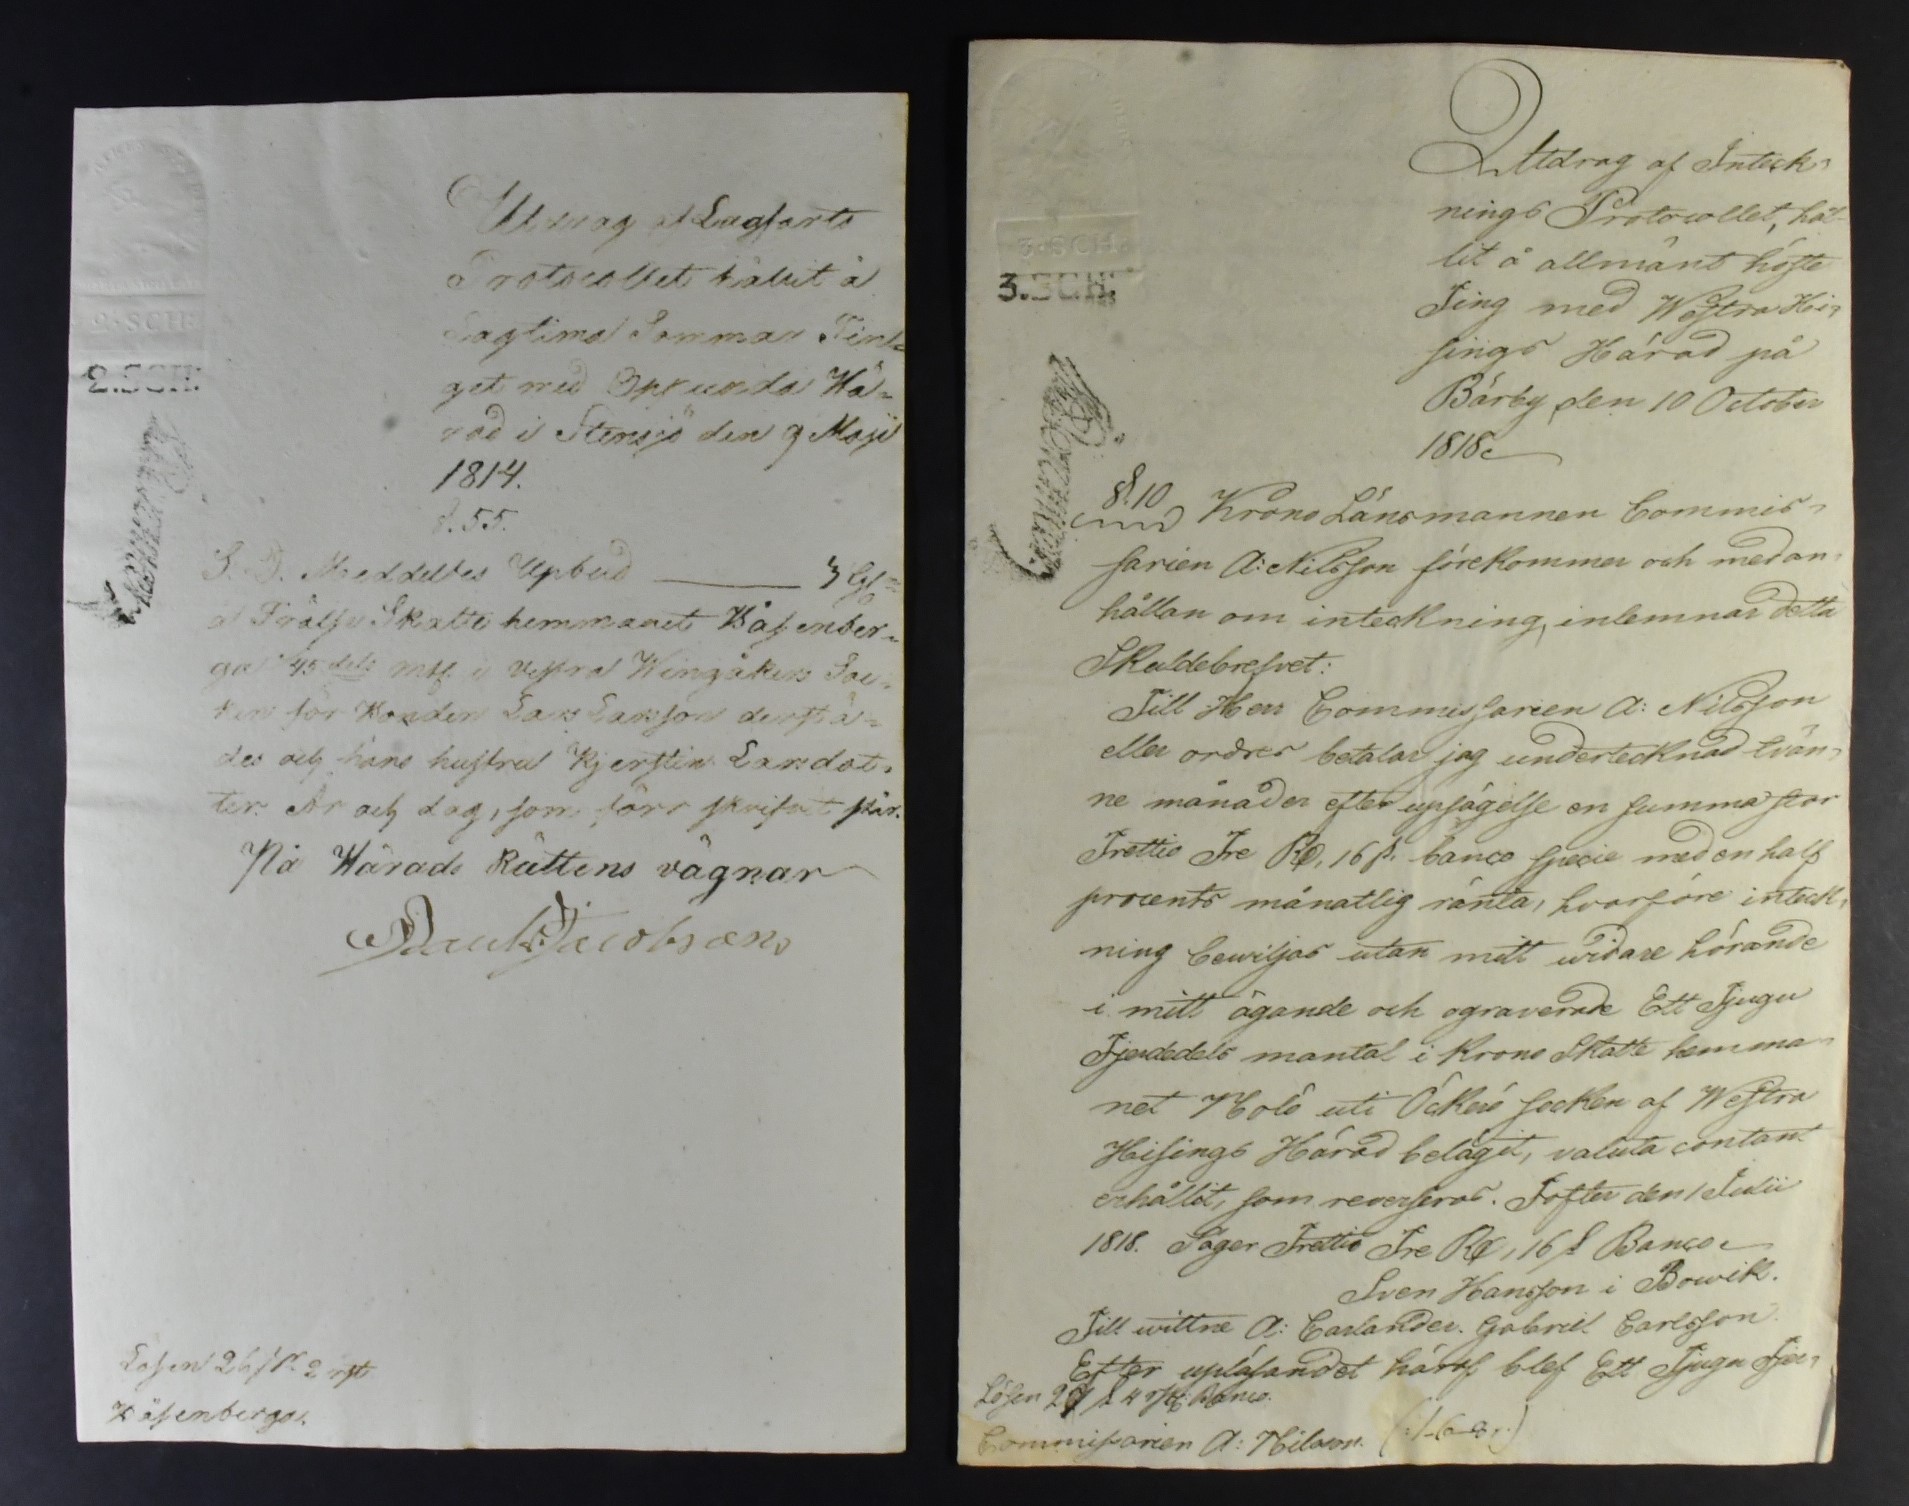 2.SCH.
2.SCH.
Utdrag af Lagfarts
Protocollet hållit å
Lagtima Sommar Tin=
get med Oppunda Hä=
rad i Stensjö den 9 Maji
1814.
§. 55.
S. D. Meddeltes Upbud 3 
å Frälse Skatte hemmanet Håsenber=
ga 45 dels mtl. i Westra Wingåkers Soc=
ken för Bonden Lars Larsson derstä=
des och hans hustru Kjerstin Larsdot=
ter. År och dag, som förr skrifvet står.
På Härads Rättens vägnar
Jacobsson
Lösen 26 s. 2 rst
Håsenberga.
3.SCH.
3.SCH.
Utdrag af Inteck=
nings Protocollet, hål=
lit å allmänt höste
Ting med Westra Hi=
sings Härad på
Bärby, den 10 October
1818.
§.10 Krono Länsmannen Commis=
sarien A: Nilsson förekommer och med an=
hållan om inteckning, inlemnar detta
Skuldebrefvet:
Till Herr Commissarien A: Nilsson
eller ordres betalar jag undertecknad tvän=
ne månader efter upsägelse en summa stor
Trettio Tre Rd, 16 s. banco specie med en half
procents månatlig ränta, hvarföre inteck=
ning bewiljas utan mitt widare hörande
i mitt ägande och ograverade Ett Tjugu
Fjerdedels mantal i Krono Skatte hemma=
net Nolö uti Öckerö socken af Westra
Hisings Härad belägit, valuta contant
erhållit, som reverseras. Tofter den 1 Julii
1818. Säger Trettio Tre Rd, 16 s Banco
Sven Hansson i Bowik.
Till wittne A: Carlander. Gabriel Carlsson.
Efter upläsandet häraf blef Ett Tjugu Fjer=
Lösen 27 s 4 rst: Banco.
Commissarien A: Nilsson.